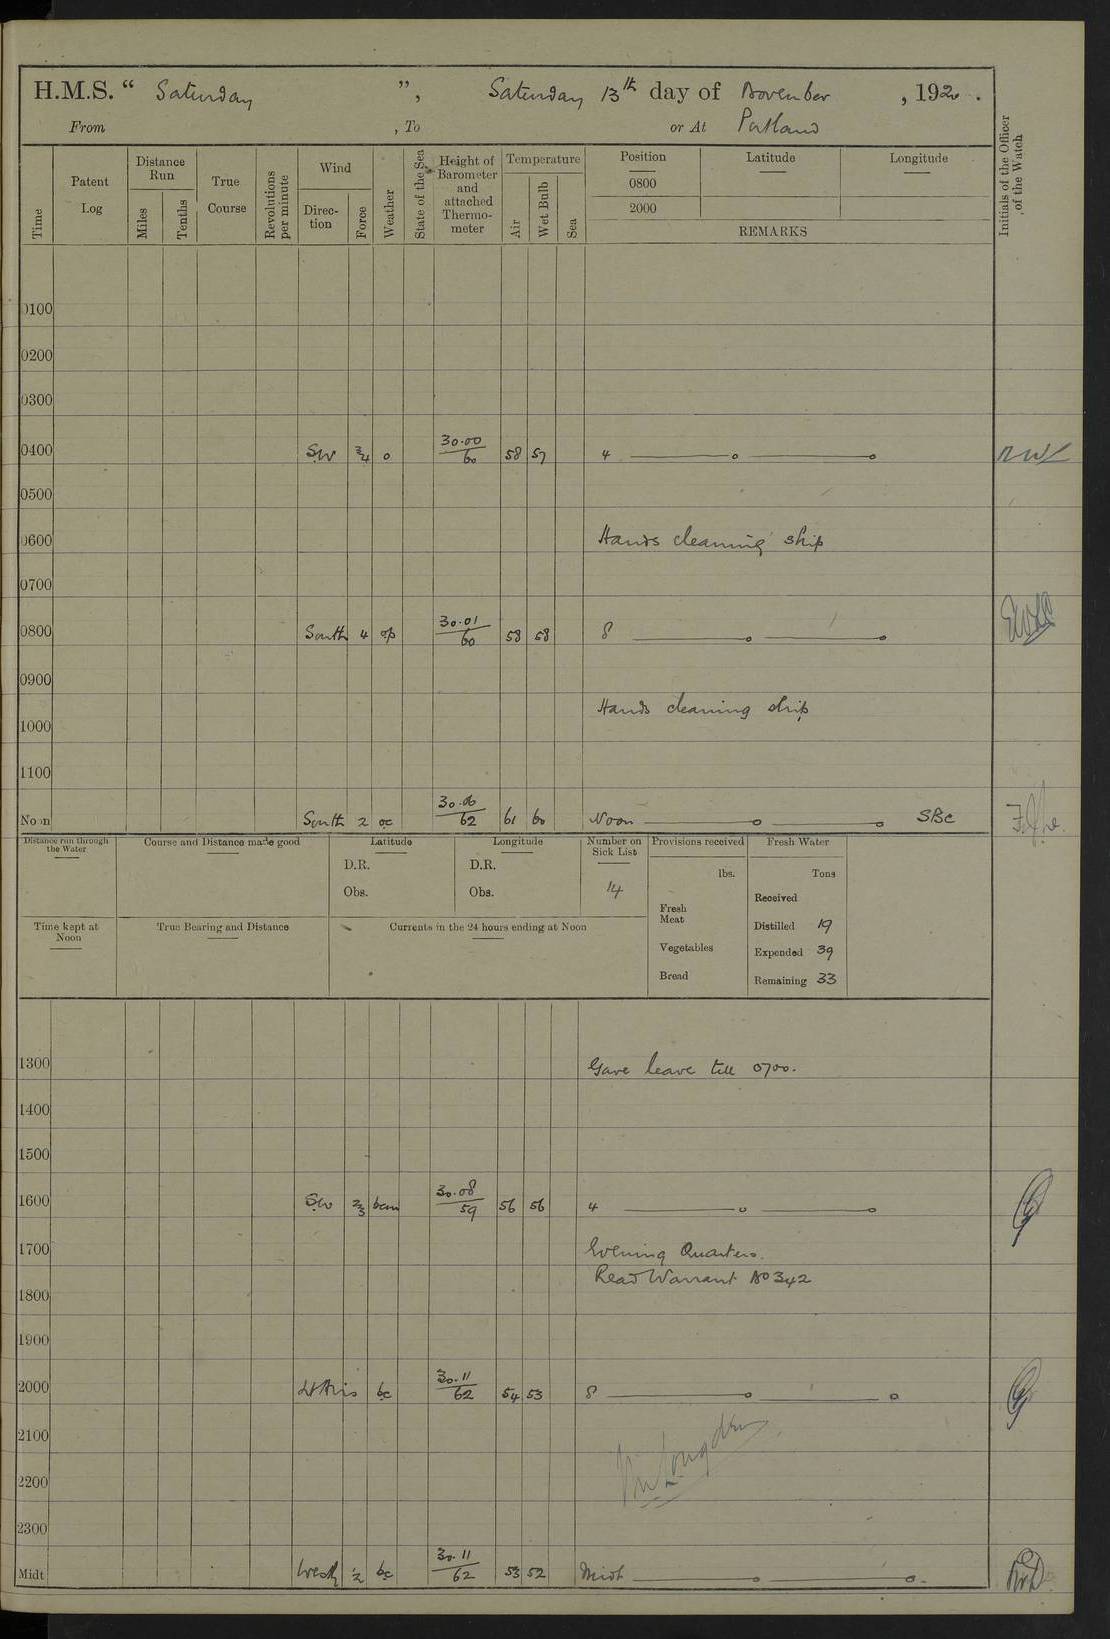 H.M.S. " Saturday ", Saturday 13th day of November, 1920.
From , To or At Portland
Time
Patent Log
Distance Run
Miles
Tenths
True Course
Revolutions per minute
Wind
Direction
Force
Weather
State of the Sea
Height of Barometer and attached Thermometer
Temperature
Air
Wet Bulb
Sea
Position
Latitude
Longitude
0800
2000
REMARKS
Initials of the Officer of the Watch
0100
0200
0300
0400 SW 3/4 o 30.00/60 58 57 4
0500
0600 Hands cleaning ship
0700
0800 South 4 op 30.01/60 58 58 8
0900
Hands cleaning ship
1000
1100
Noon South 2 oc 30.06/62 61 60 Noon SBC
Distance run through the Water
Course and Distance made good
Latitude
D.R.
Obs.
Longitude
D.R.
Obs.
Number on Sick List
14
Provisions received
lbs.
Fresh Meat
Vegetables
Bread
Fresh Water
Tons
Received
Distilled 19
Expended 39
Remaining 33
Time kept at Noon
True Bearing and Distance
Currents in the 24 hours ending at Noon
1300 Gave leave till 0700.
1400
1500
1600 SW 2/3 bcm 30.08/59 56 56 4
1700 Evening Quarters.
Read Warrant No 342
1800
1900
2000 Lt Airs bc 30.11/62 54 53 8
2100
2200
2300
Midt West 1/2 bc 30.11/62 53 52 Midt